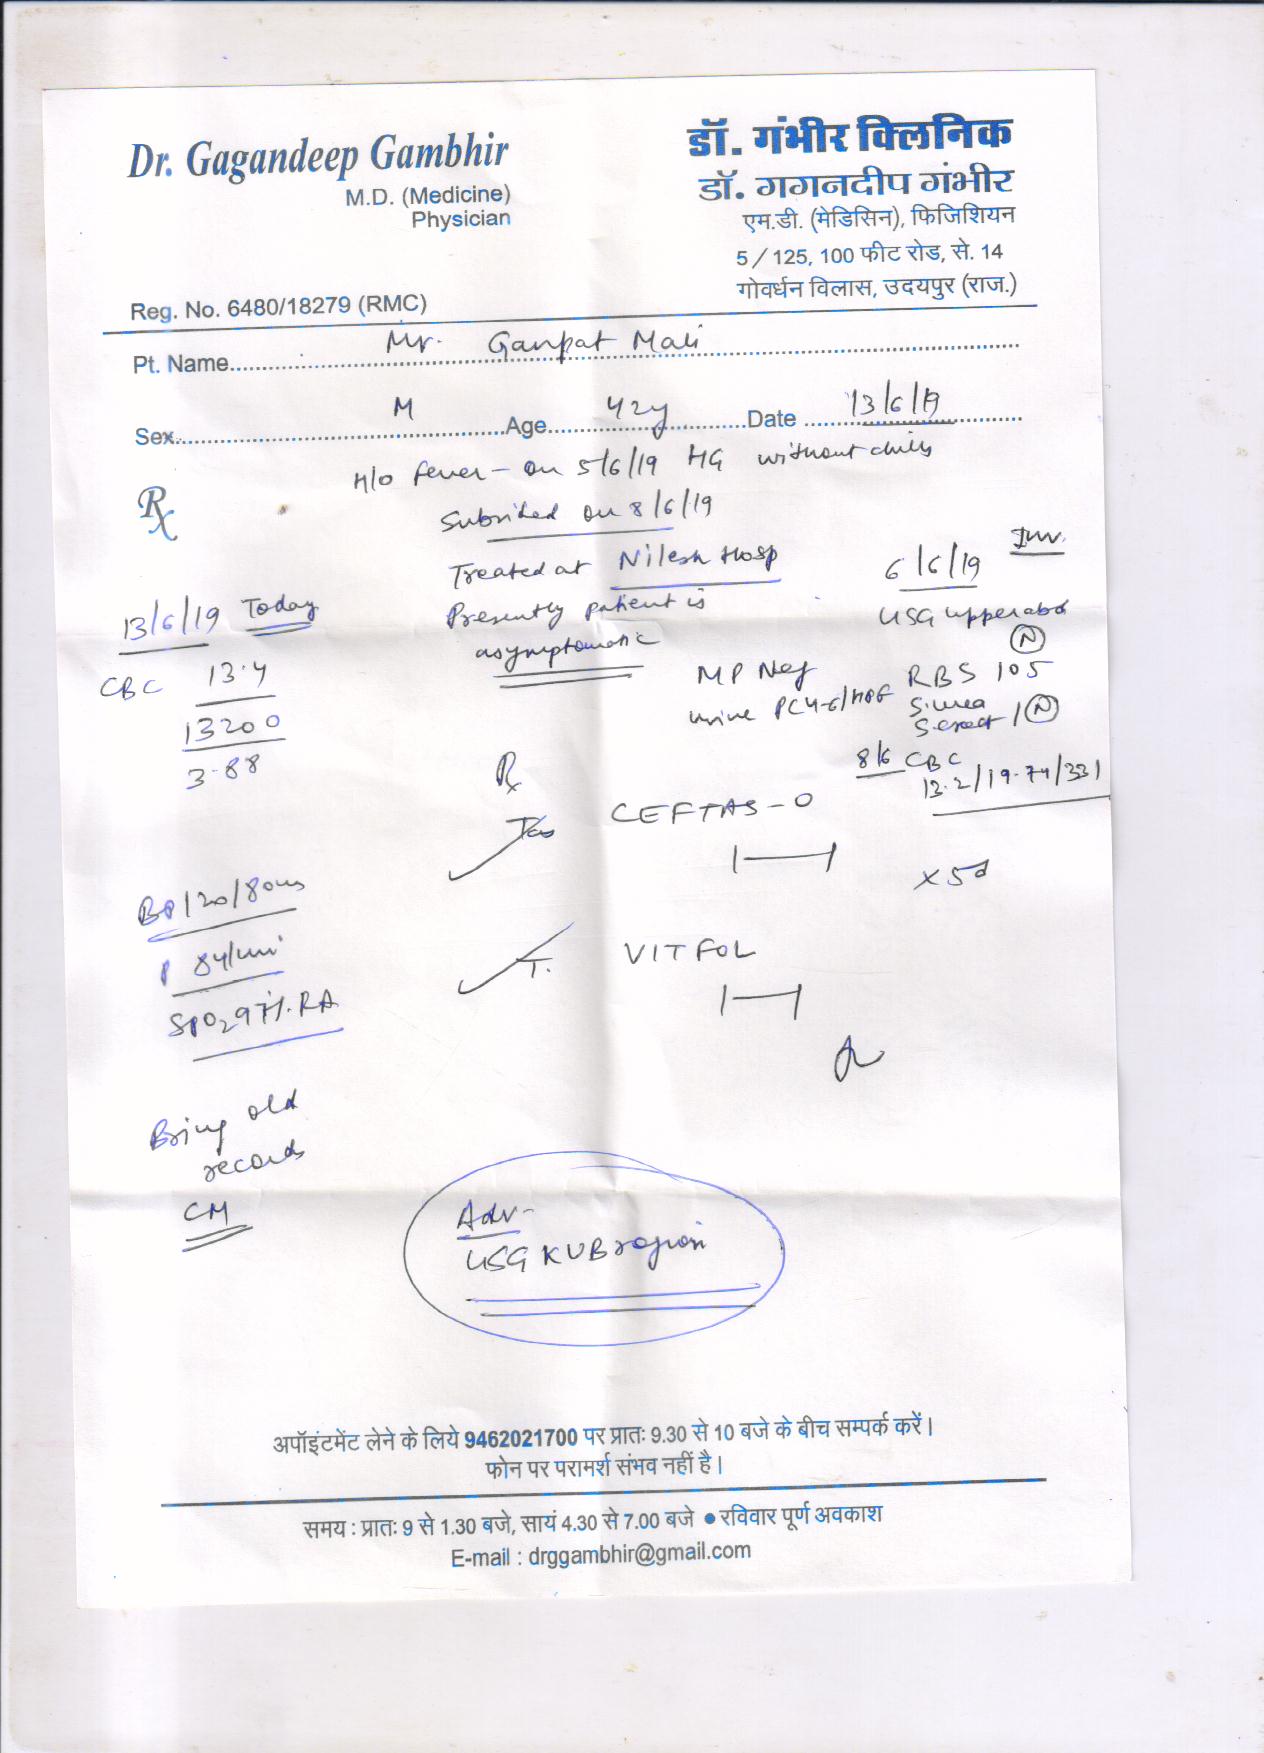 Dr. Gagandeep Gambhir
M.D. (Medicine)
Physician
Reg. No. 6480/18279 (RMC)
डॉ. गंभीर क्लिनिक
डॉ. गगनदीप गंभीर
एम.डी. (मेडिसिन), फिजिशियन
5 / 125, 100 फीट रोड, से. 14
गोवर्धन विलास, उदयपुर (राज.)
Pt. Name Mr. Ganpat Mali
Sex M Age 42y Date 13/6/19
H/o fever - on 5/6/19 HG without chills
Rx
on 8/6/19
Treated at Nilesh Hosp
Presently patient is
asymptomatic
Inv.
6/6/19
USG upper abd
(N)
MP Neg RBS 105
urine PC 4-6/HPF S. urea
S. creat (N)
8/6 CBC
13.2/19.74/331
13/6/19 Today
CBC 13.4
13200
3.88
Rx
Tab CEFTAS-O
1—1 x 5d
T. VITFOL
1—1
BP 120/80
P 84/min
SPO2 97% RA
Bring old
records
CM
Adv-
USG KUB region
अपॉइंटमेंट लेने के लिये 9462021700 पर प्रातः 9.30 से 10 बजे के बीच सम्पर्क करें।
फोन पर परामर्श संभव नहीं है।
समय : प्रातः 9 से 1.30 बजे, सायं 4.30 से 7.00 बजे ● रविवार पूर्ण अवकाश
E-mail : drggambhir@gmail.com